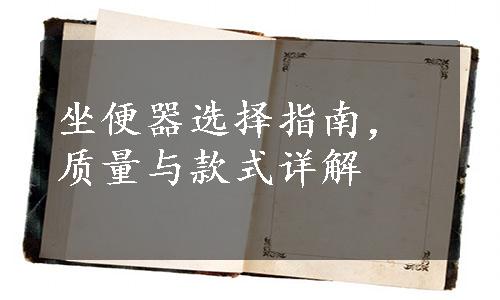 坐便器选择指南，
质量与款式详解